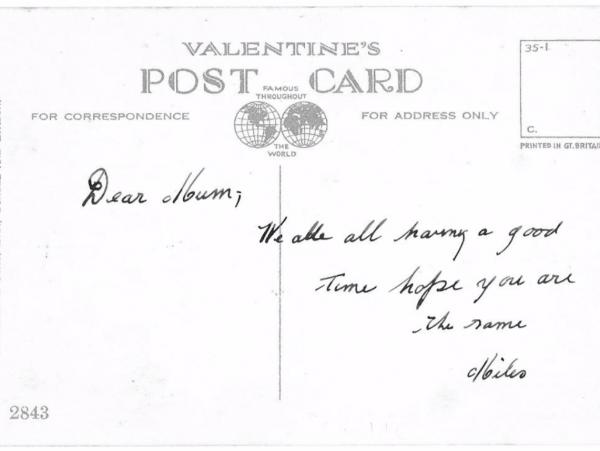 VALENTINE'S
POST CARD
FAMOUS
THROUGHOUT
THE
WORLD
FOR CORRESPONDENCE
FOR ADDRESS ONLY
35-1
C.
PRINTED IN GT. BRITAI
Dear Mum,
We are all having a good
time hope you are
the same
Miles
2843